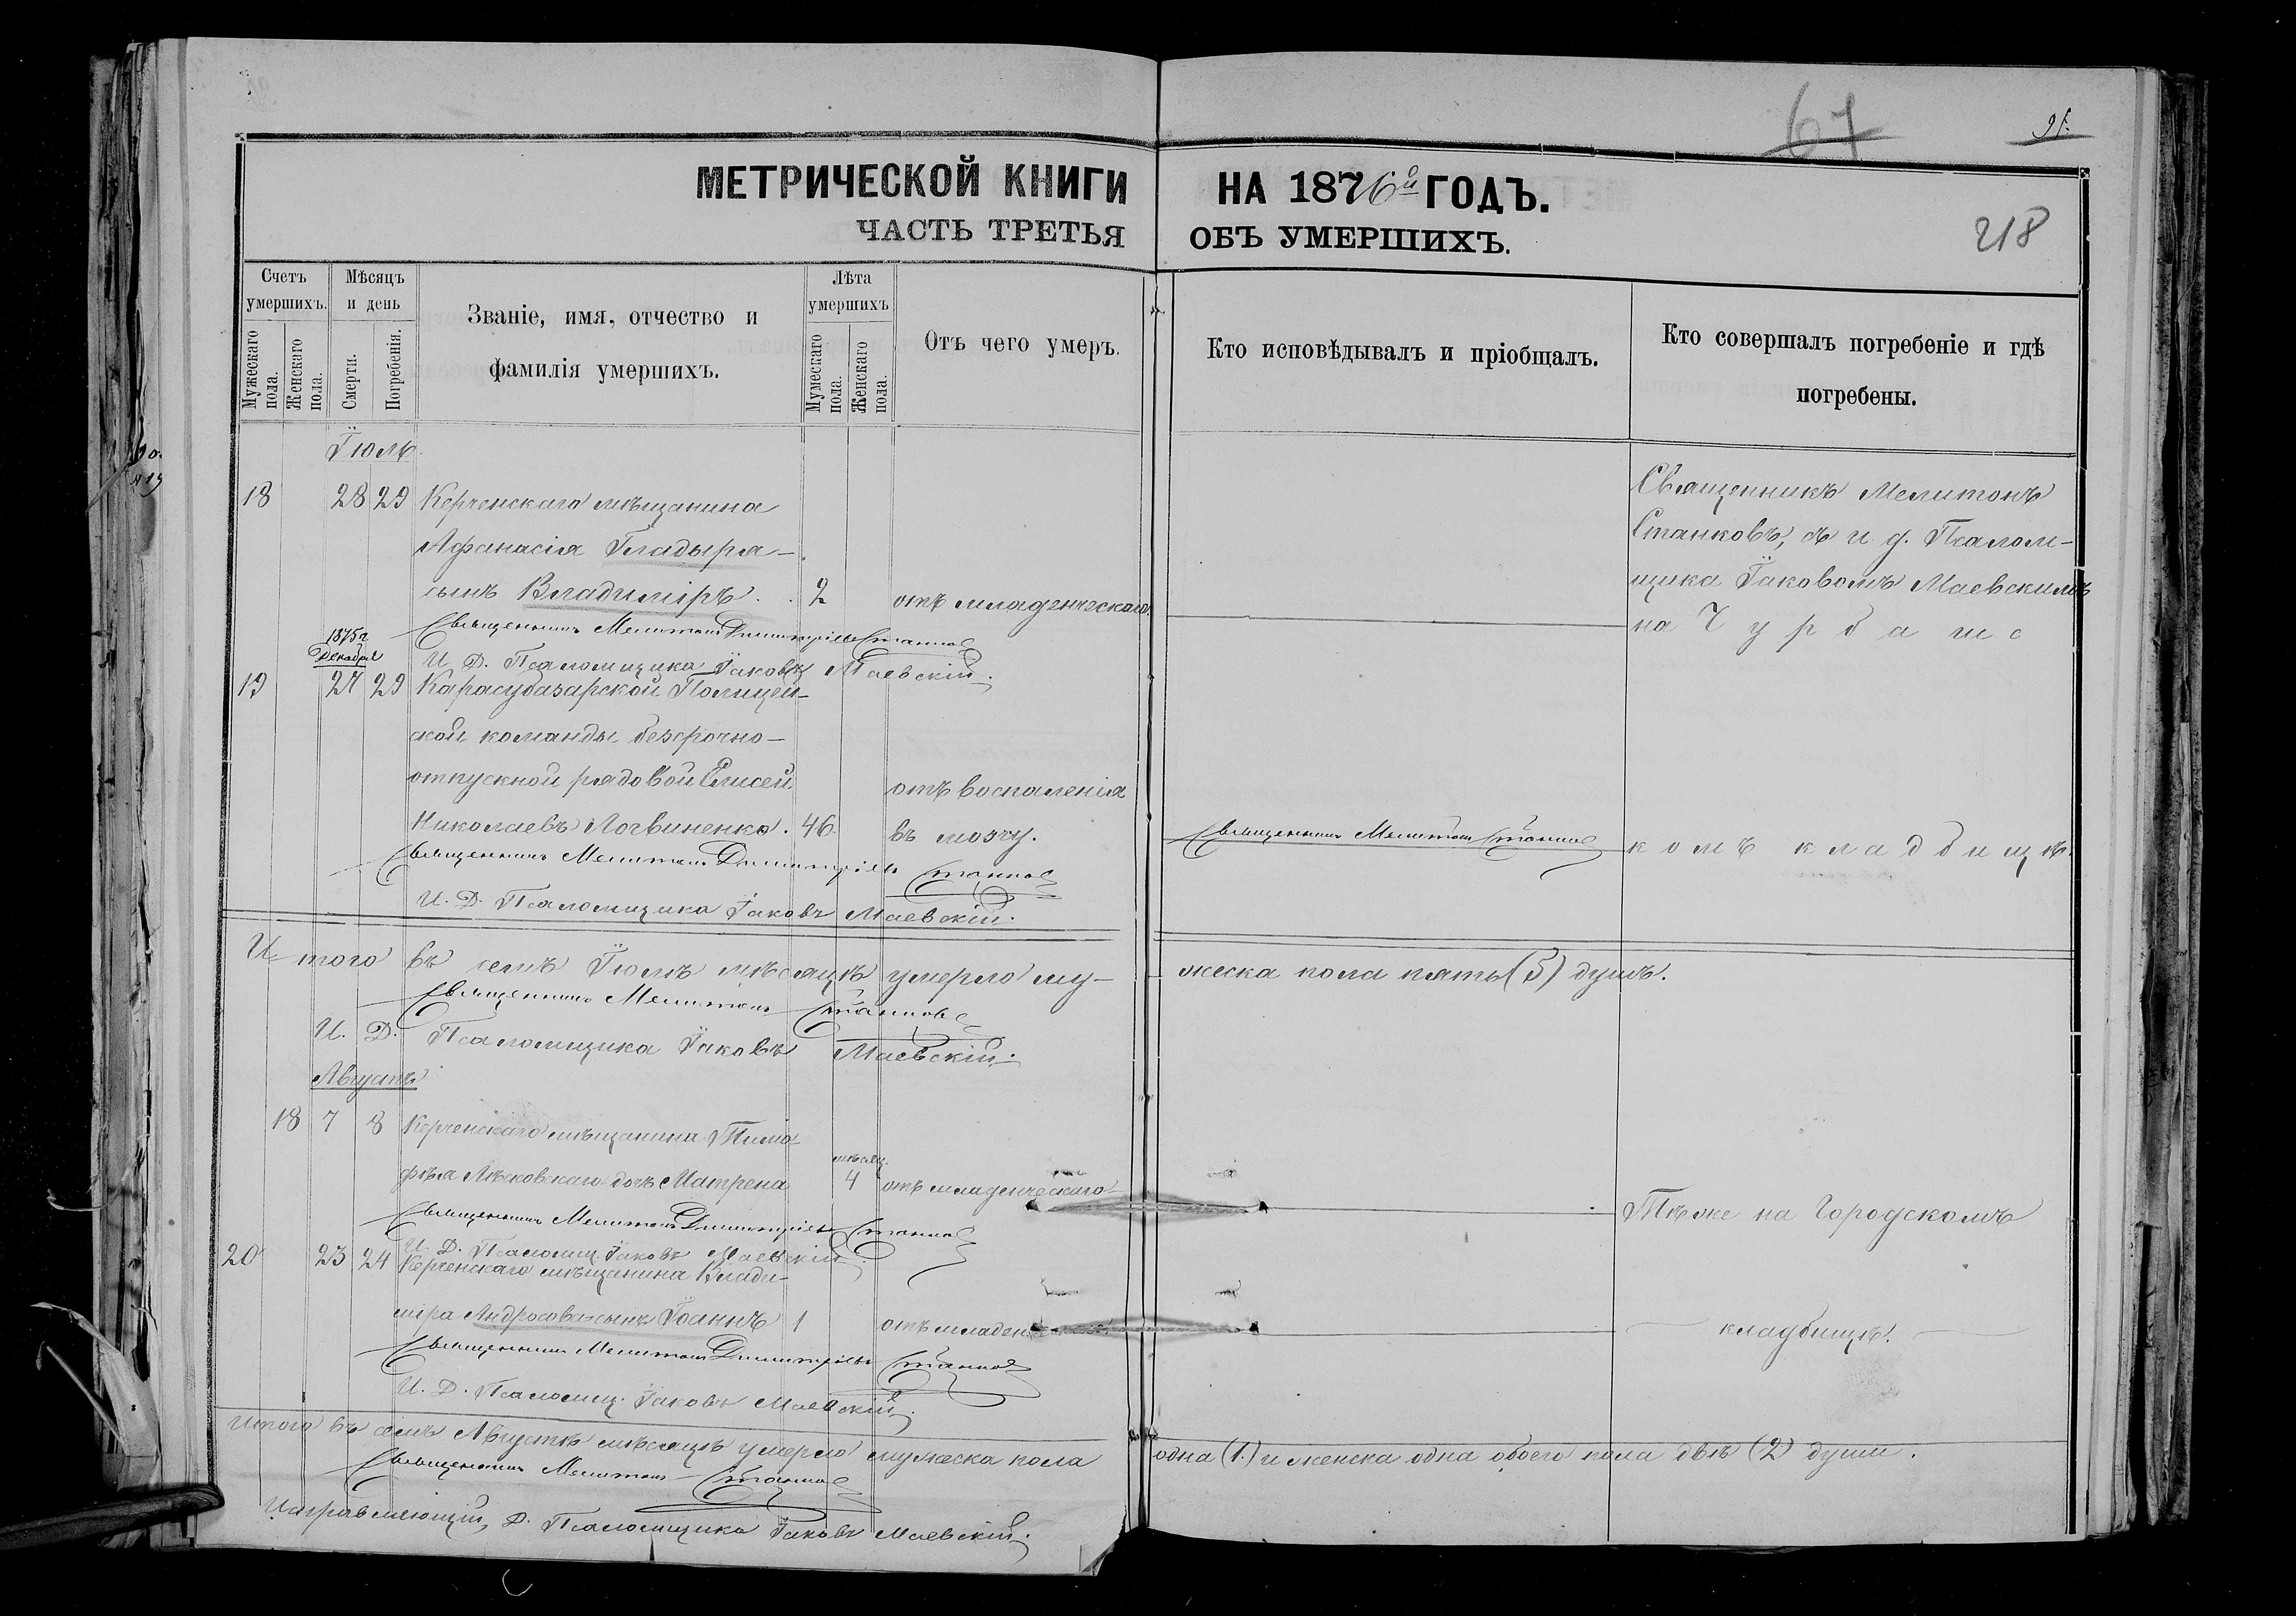 67
91.
МЕТРИЧЕСКОЙ КНИГИ НА 1876й ГОДЪ.
ЧАСТЬ ТРЕТЬЯ ОБЪ УМЕРШИХЪ.
218
Счетъ умершихъ.
Мужескаго пола.
Женскаго пола.
Мѣсяцъ и день
Смерти.
Погребенія.
Званіе, имя, отчество и
фамилія умершихъ.
Лѣта умершихъ
Мужескаго пола.
Женскаго пола.
Отъ чего умеръ.
Кто исповѣдывалъ и пріобщалъ.
Кто совершалъ погребеніе и гдѣ
погребены.
Іюль
18 28 29 Керченскаго мѣщанина
Афанасія Гладыря
сынъ Владиміръ. 2 отъ младенческаго.
Священникъ Мелитонъ
Станковъ, съ и. д. Псалом-
щика Іаковомъ Маевскимъ
на Чурбашс
Священникъ Мелитонъ Димитріевъ Станковъ
И. Д. Псаломщика Іаковъ Маевскій.
1875 г.
Декабря
19 27 29 Карасубазарской Полицей-
ской команды безсрочно-
отпускной рядовой Елисей
Николаевъ Логвиненко. 46. отъ воспаленія
въ мозгу.
Священникъ Мелитонъ Станковъ
комъ кладбищѣ.
Священникъ Мелитонъ Димитріевъ Станковъ
И. Д. Псаломщика Іаковъ Маевскій.
Итого въ семъ Іюлѣ мѣсяцѣ умерло му-
жеска пола пять (5) душъ.
Священникъ Мелитонъ Станковъ
И. Д. Псаломщика Іаковъ Маевскій.
Августъ
18 7 8 Керченскаго мѣщанина Тимо-
фѣя Лѣсковскаго дочь Матрена мѣсяц. 4 отъ младенческаго
Тѣже на Городскомъ
Священникъ Мелитонъ Димитріевъ Станковъ
И. Д. Псаломщ. Іаковъ Маевскій.
20 23 24 Керченскаго мѣщанина Влади-
міра Андросова сынъ Іоаннъ 1 отъ младен
кладбищѣ.
Священникъ Мелитонъ Димитріевъ Станковъ
И. Д. Псаломщ. Іаковъ Маевскій.
Итого въ семъ Августѣ мѣсяцѣ умерло мужеска пола
одна (1.) и женска одна обоего пола двѣ (2) души.
Священникъ Мелитонъ Станковъ
Исправляющій, Д. Псаломщика Іаковъ Маевскій.